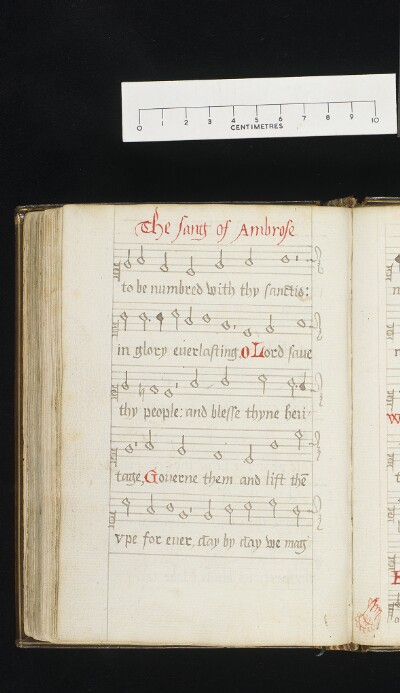 0 1 2 3 4 5 6 7 8 9 10
CENTIMETRES
The sang of Ambrose
to be numbred with thy sanctis:
in glory everlasting, O Lord save
thy people: and blesse thyne heri-
tage, Governe them and lift thē
vpe for ever, day by day we mag